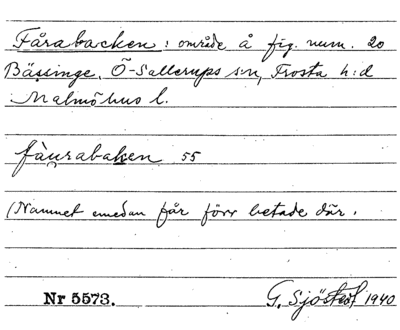 Fårabacken: område å fig. num. 20
Bässinge, Ö-Sallerups s:n, Frosta h:d
Malmöhus l.
fàu̯rabaken 55
(Namnet emedan får förr betade där.
Nr 5573.
G. Sjöstedt 1940